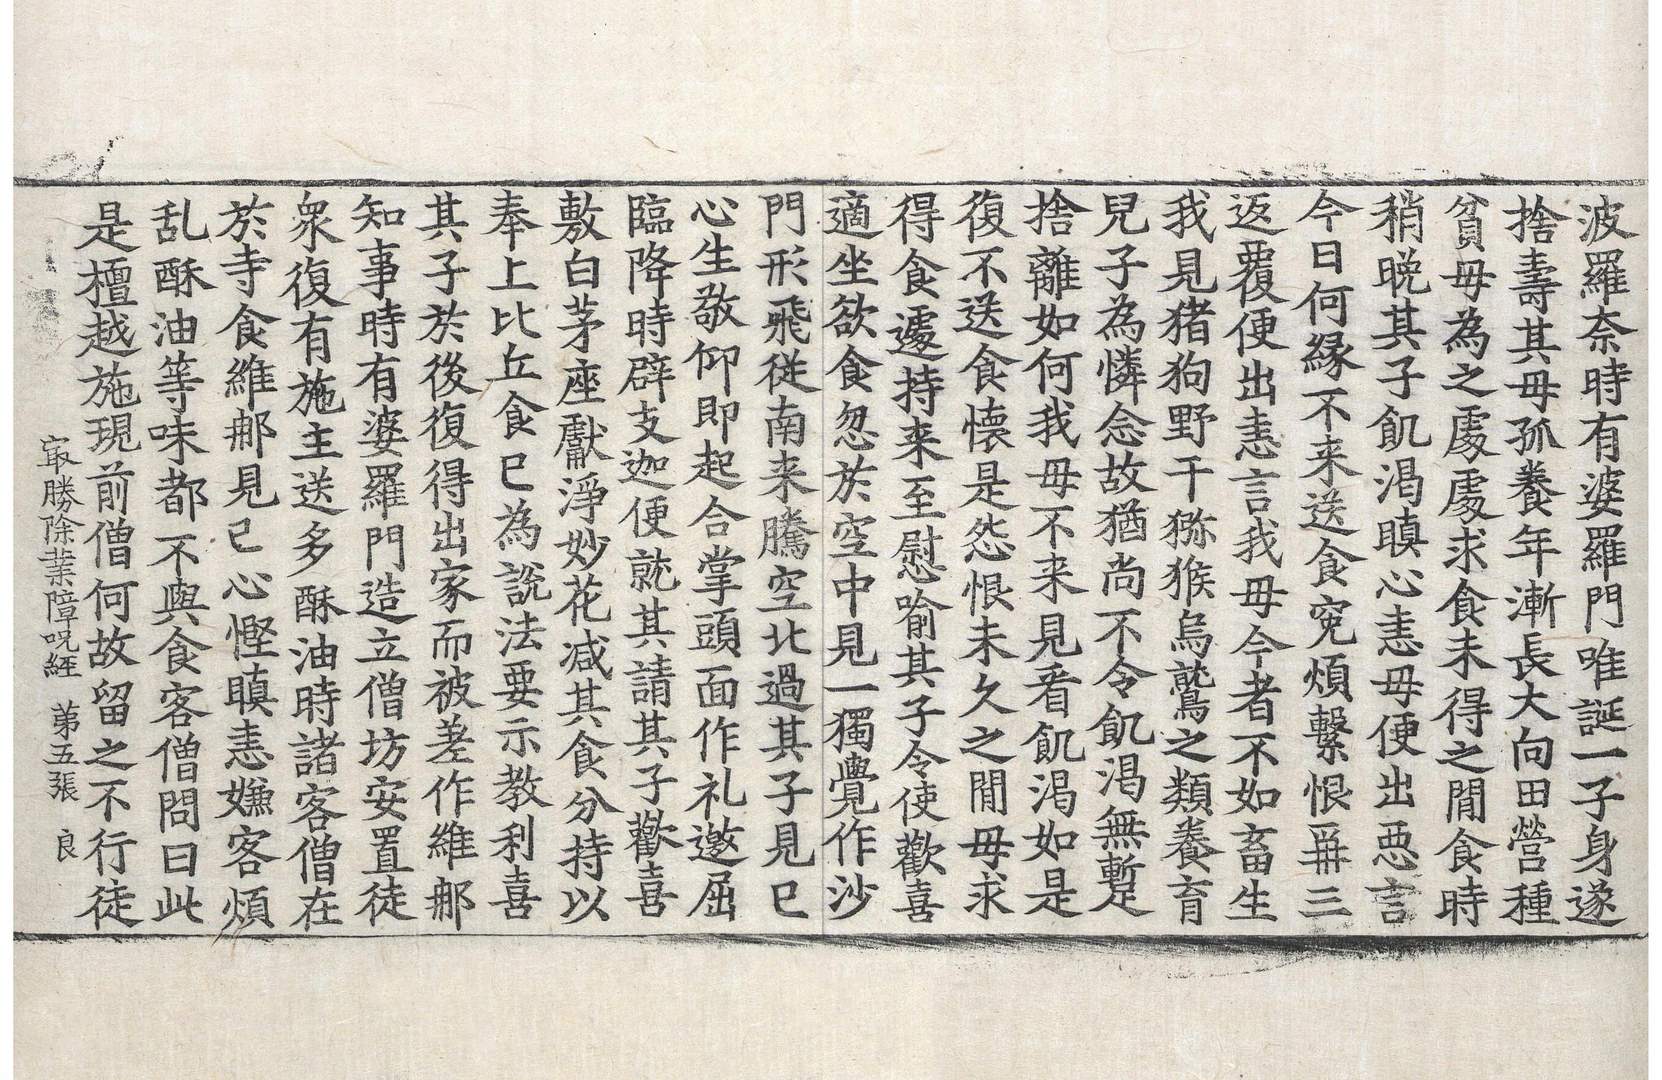 波羅奈時有婆羅門唯誕一子身遂
捨壽其母孤養年漸長大向田營種
貧母為之處處求食未得之閒食時
稍晚其子飢渴瞋心恚母便出惡言
今日何緣不来送食寃煩繫恨再三
返覆便出恚言我母今者不如畜生
我見猪狗野干獼猴烏鷲之類養育
兒子為憐念故猶尚不令飢渴無蹔
捨離如何我母不来見看飢渴如是
復不送食懷是怨恨未久之閒母求
得食遽持来至慰喻其子令使歡喜
適坐欲食忽於空中見一獨覺作沙
門形飛従南来騰空北過其子見已
心生敬仰即起合掌頭面作礼邀屈
臨降時辟支迦便就其請其子歡喜
敷白茅座獻淨妙花減其食分持以
奉上比丘食已為說法要示教利喜
其子於後復得出家而被差作維那
知事時有婆羅門造立僧坊安置徒
衆復有施主送多酥油時諸客僧在
於寺食維那見已心慳瞋恚嫌客煩
乱酥油等味都不與食客僧問曰此
是檀越施現前僧何故留之不行徒
㝡勝除業障呪經　第五張　良